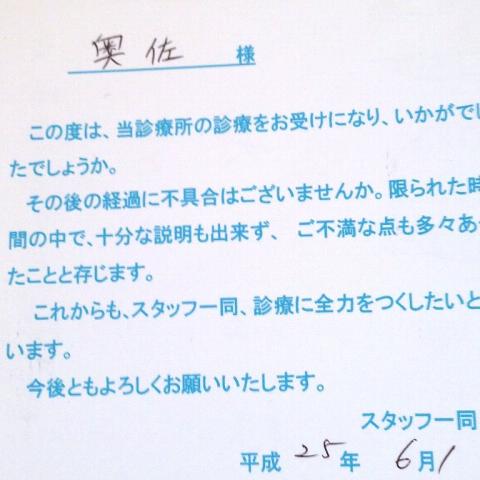 奥佐 様
この度は、当診療所の診療をお受けになり、いかがでし
たでしょうか。
その後の経過に不具合はございませんか。限られた時
間の中で、十分な説明も出来ず、 ご不満な点も多々あっ
たことと存じます。
これからも、スタッフ一同、診療に全力をつくしたいと
います。
今後ともよろしくお願いいたします。
スタッフ一同
平成 25 年 6月1